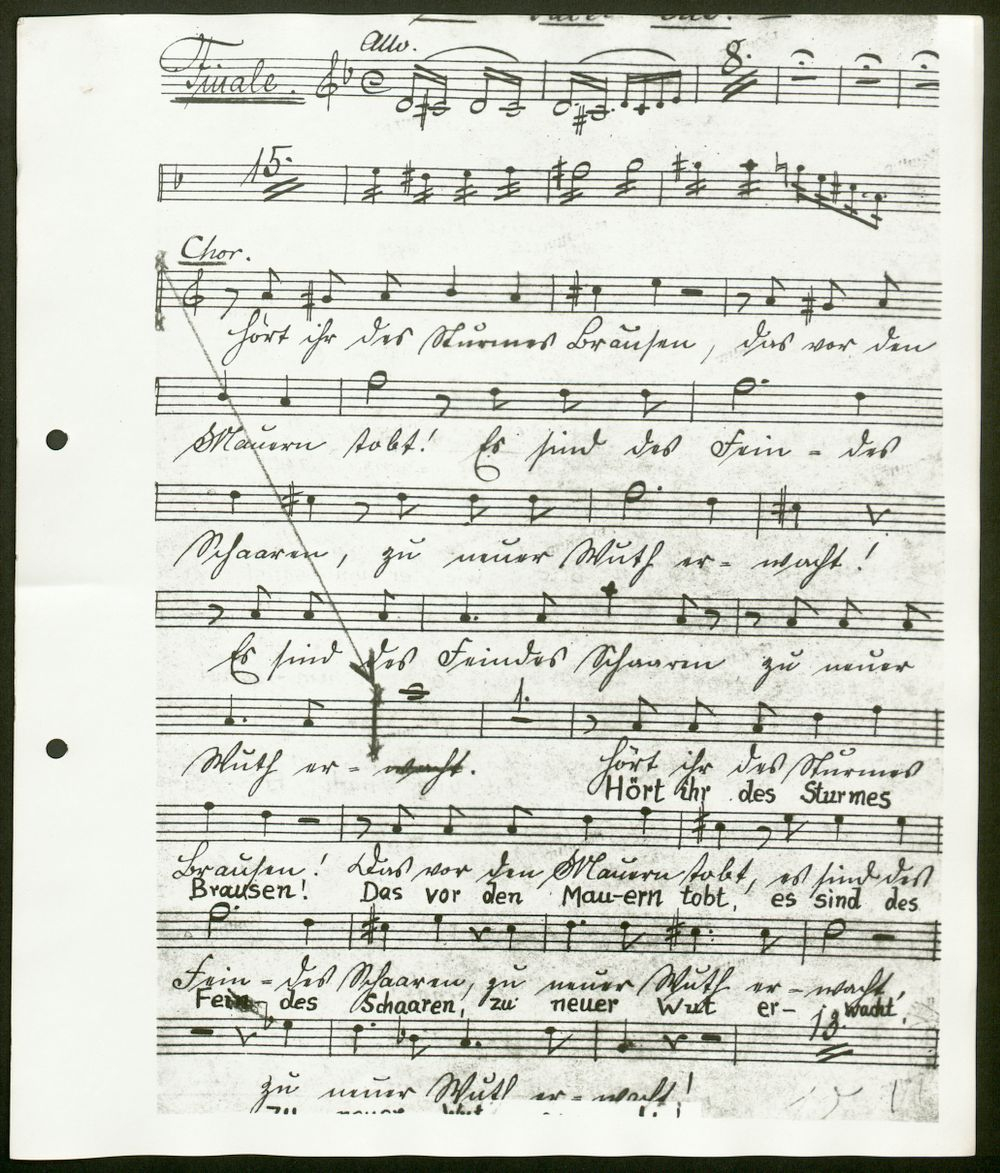 Finale. Allo.
8.
15.
Chor.
Hört ihr des Sturmes Brausen, das vor den
Mauern tobt! Es sind des Fein - des
Schaaren, zu neuer Wuth er - wacht!
Es sind des Feindes Schaaren zu neuer
1.
Wuth er - wacht. Hört ihr des Sturmes
Hört ihr des Sturmes
Brausen! Das vor den Mauern tobt, es sind des
Brausen! Das vor den Mau-ern tobt, es sind des
Fein - des Schaaren, zu neuer Wuth er - wacht,
Fein - des Schaaren, zu neuer Wut er- wacht,
13.
zu neuer Wuth er - wacht!